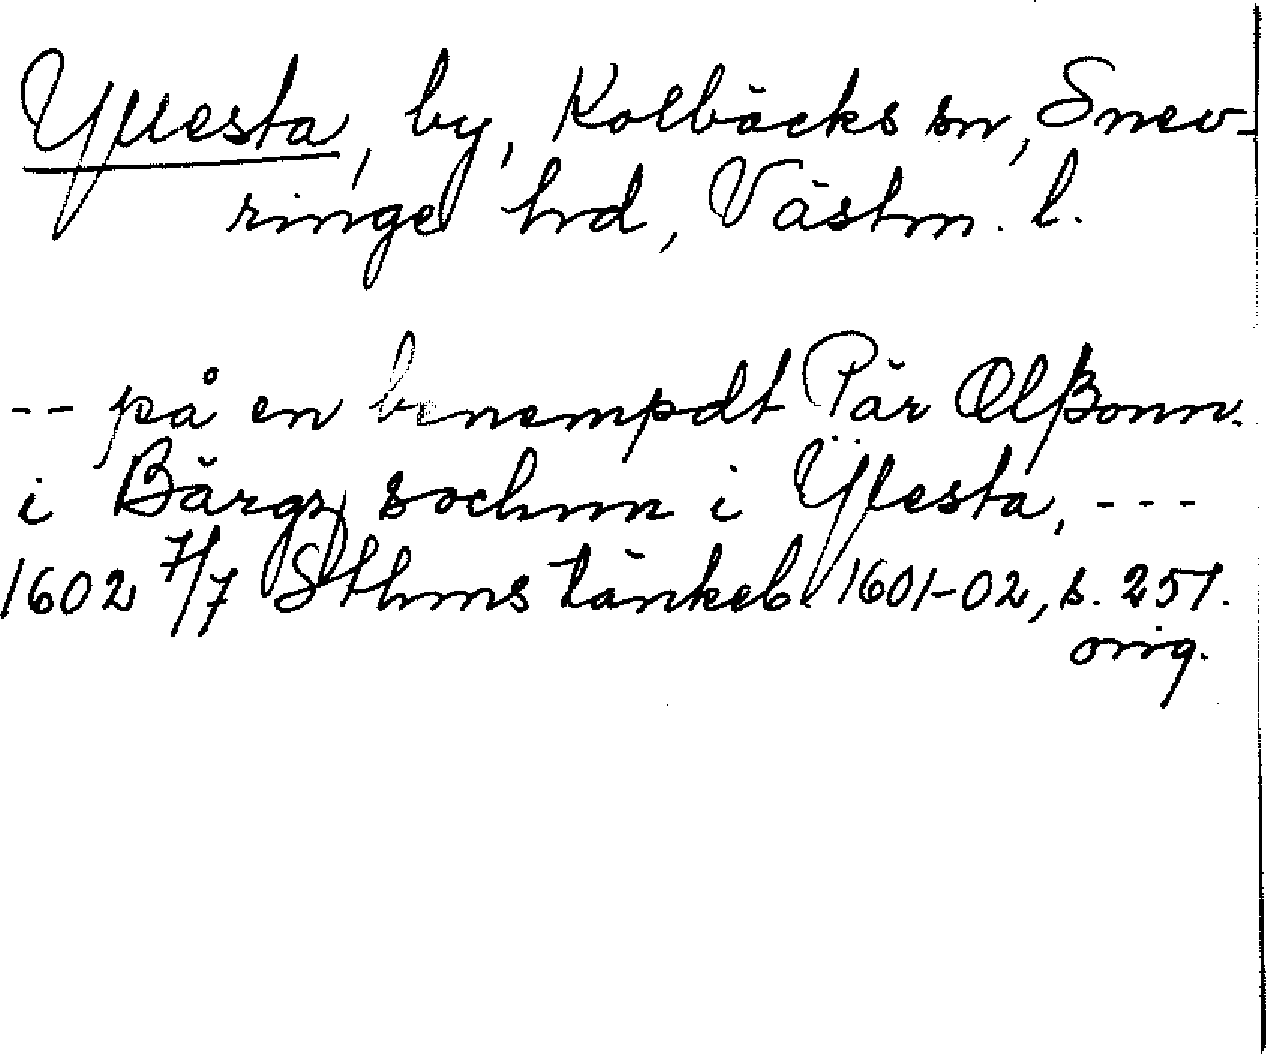 Yllesta, by, Kolbäcks sn, Snev-
ringe hd, Västm. l.
-- på en benempdt Pär Olßonn.
i Bärgz sochnn i Ÿlesta, ---
1602 7/7 Sthms tänkeb. 1601-02, s. 257.
orig.